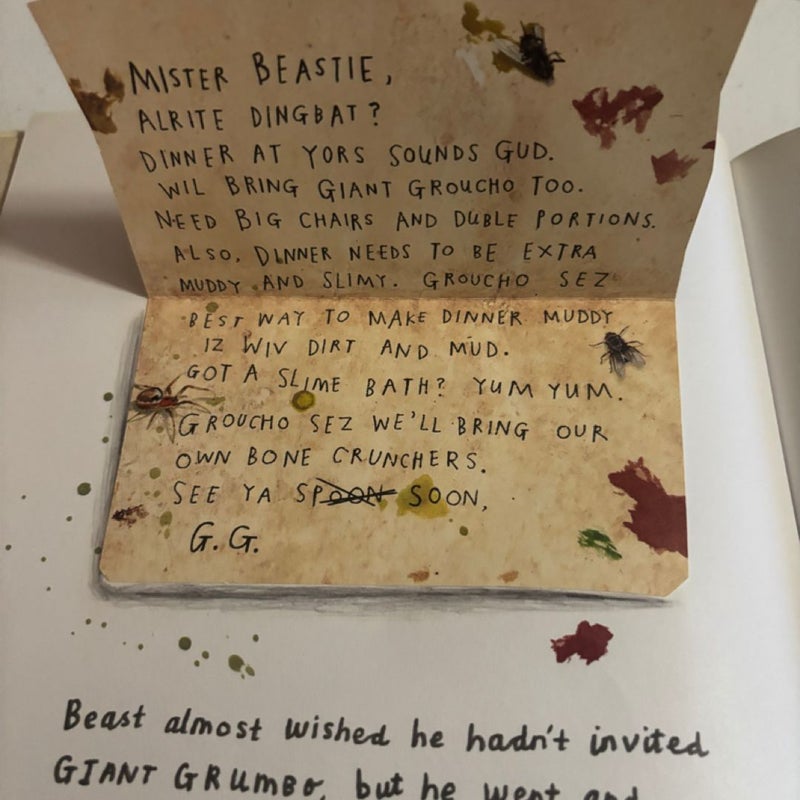 MISTER BEASTIE,
ALRITE DINGBAT?
DINNER AT YORS SOUNDS GUD.
WIL BRING GIANT GROUCHO TOO.
NEED BIG CHAIRS AND DUBLE PORTIONS.
ALSO, DINNER NEEDS TO BE EXTRA
MUDDY AND SLIMY. GROUCHO SEZ
BEST WAY TO MAKE DINNER MUDDY
IZ WIV DIRT AND MUD.
GOT A SLIME BATH? YUM YUM.
GROUCHO SEZ WE'LL BRING OUR
OWN BONE CRUNCHERS.
SEE YA SPOON SOON,
G.G.
Beast almost wished he hadn't invited
GIANT GRUMBO, but he went and